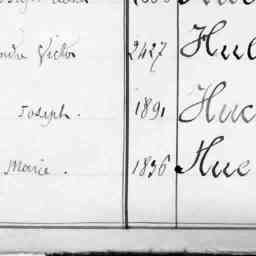 Victor 2427 Hul
Joseph. 1891 Huc
Marie. 1836 Hue